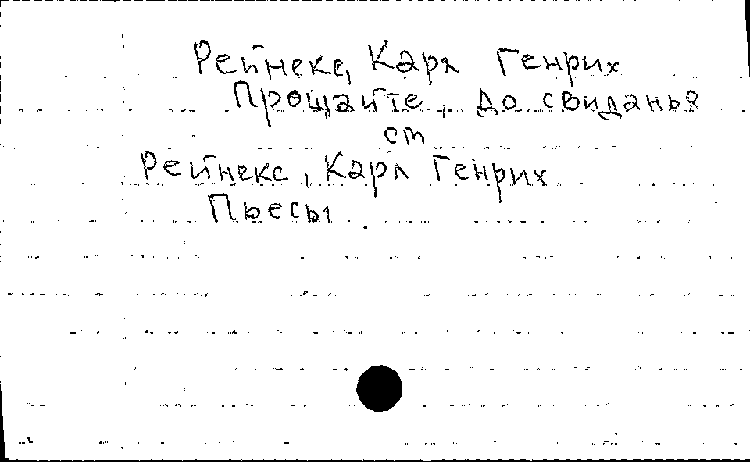 Рейнеке, Карл Генрих
Прощайте, до свиданья
см
Рейнеке, Карл Генрих
Пьесы.